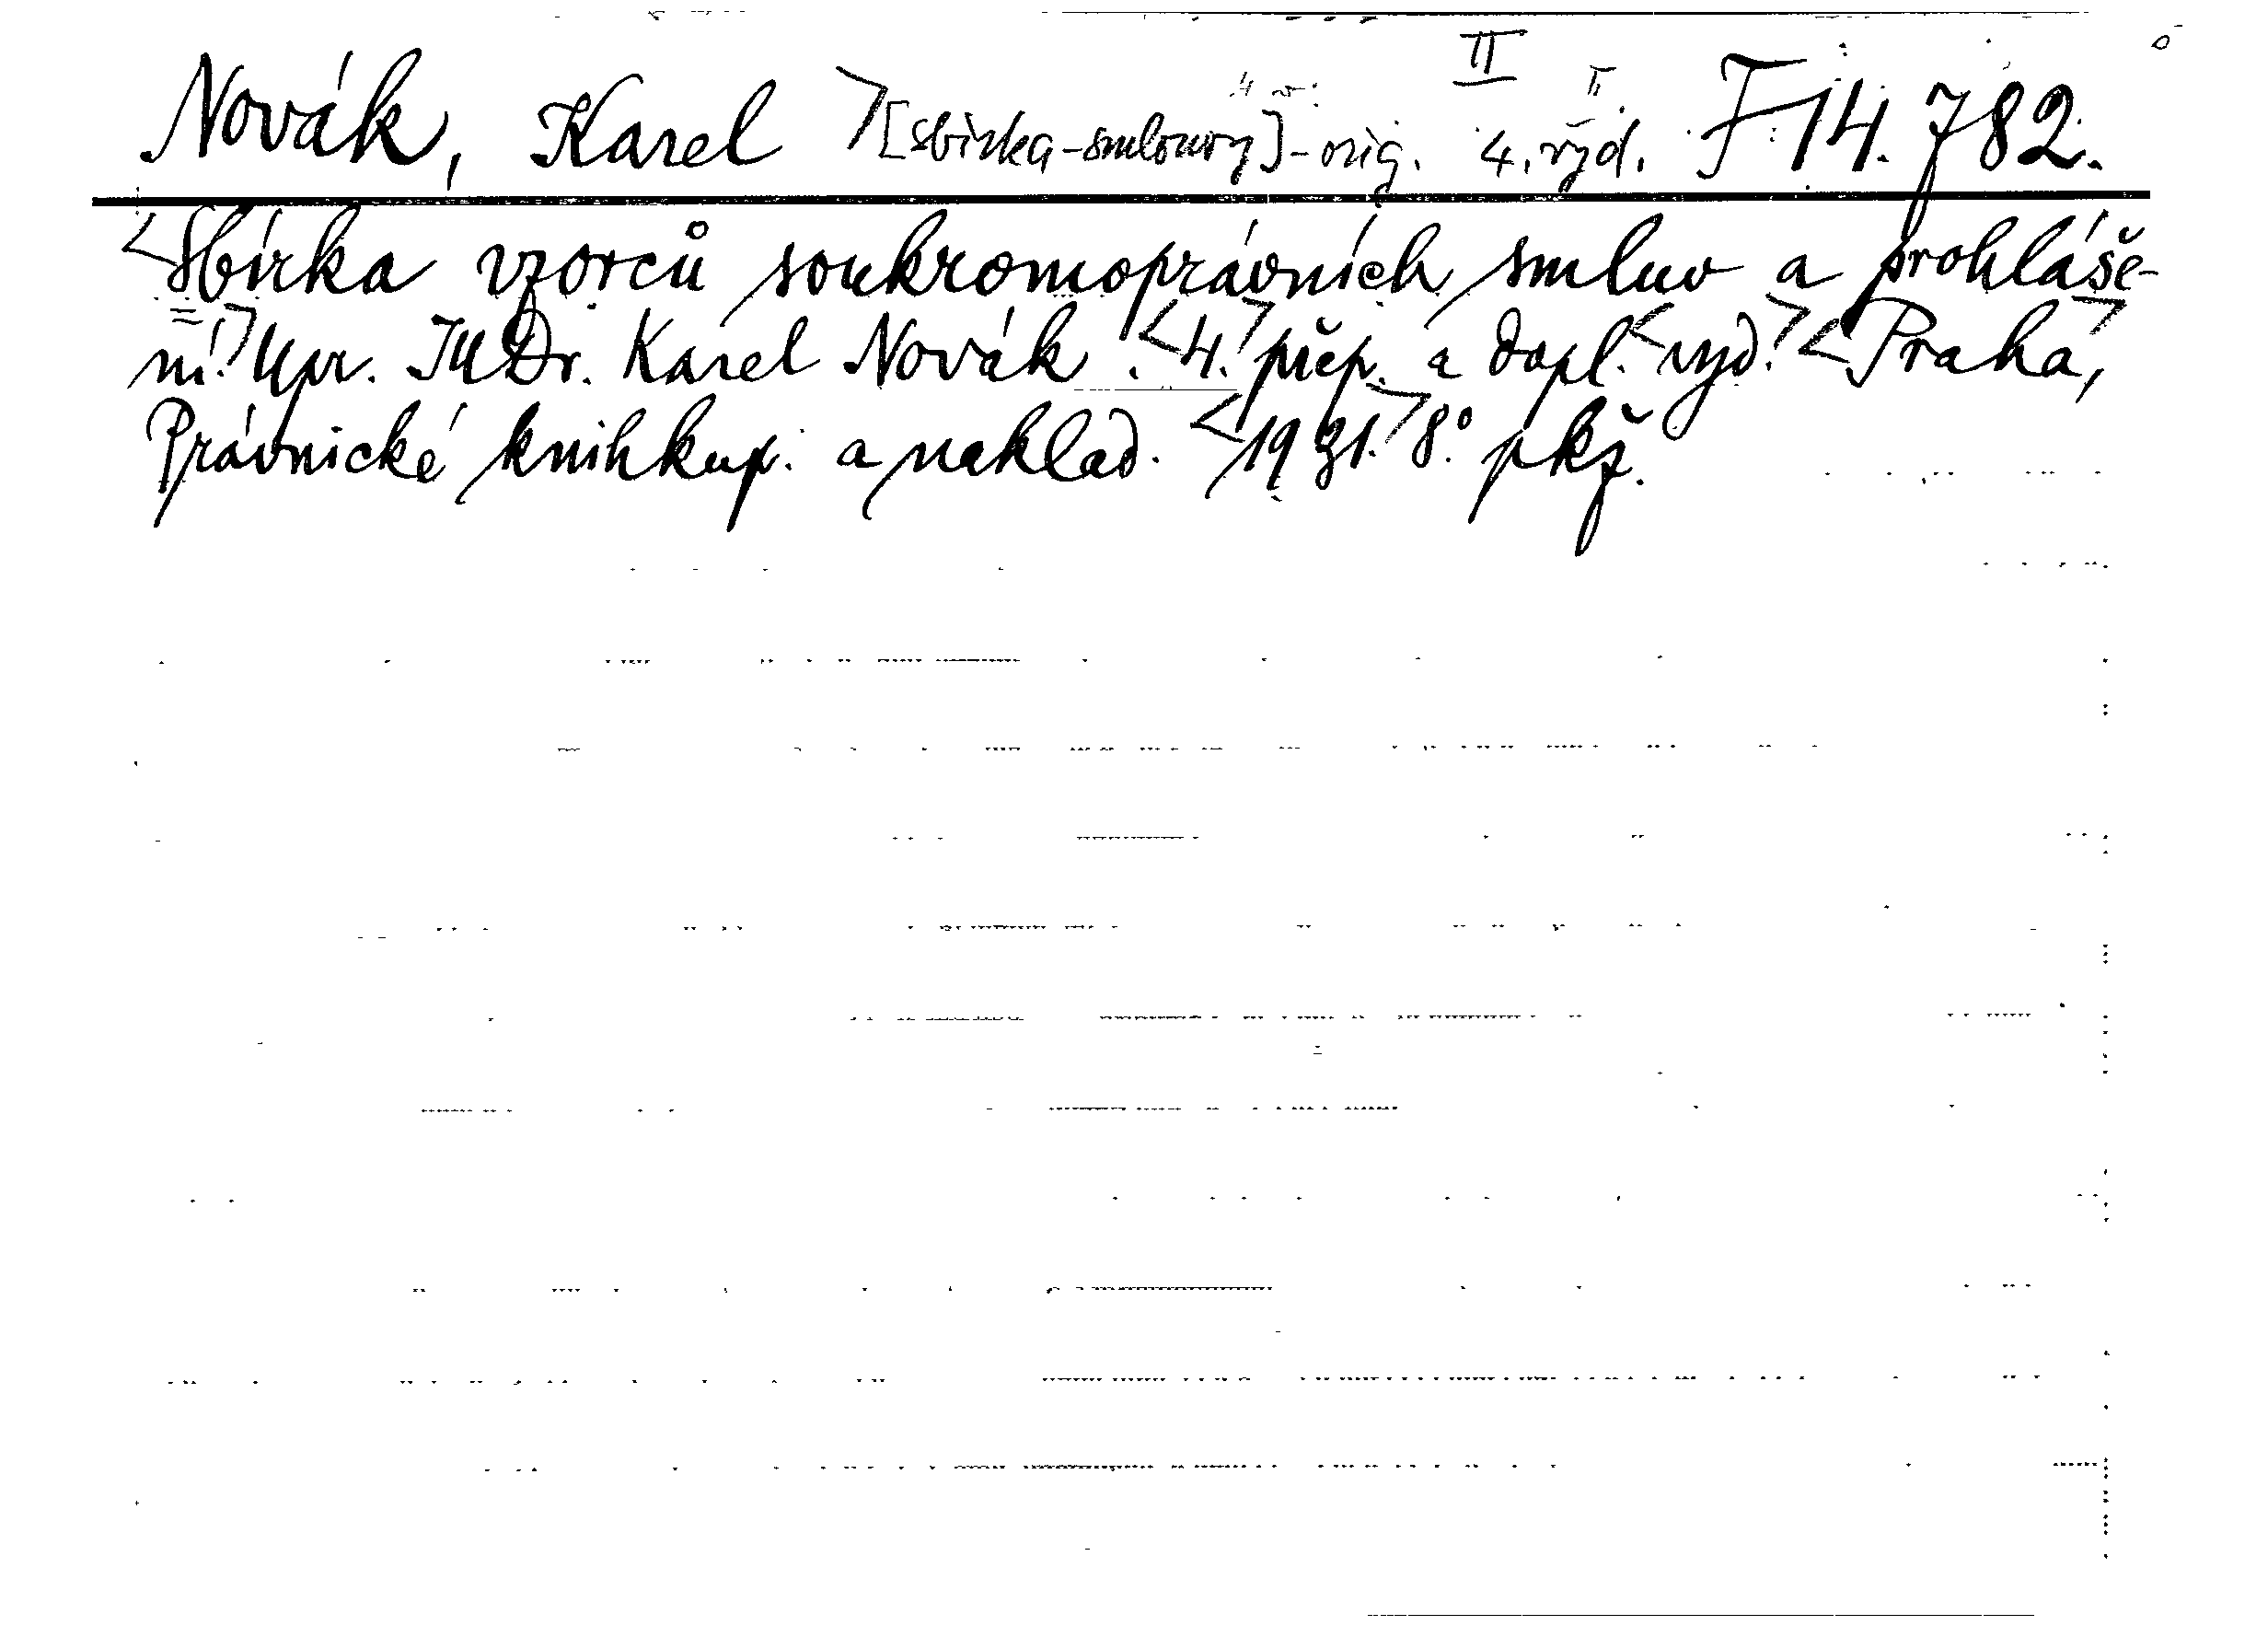 II
Novák, Karel [sbírka-smlouvy]-orig. 4. vyd. F 14.782.
<Sbírka vzorců soukromoprávních smluv a prohláše-
ní.> Upr. JUDr. Karel Novák. <4.> přep. a dopl. <vyd.> <Praha,>
Právnické knihkup. a naklad. <1931.> 8° pkž.